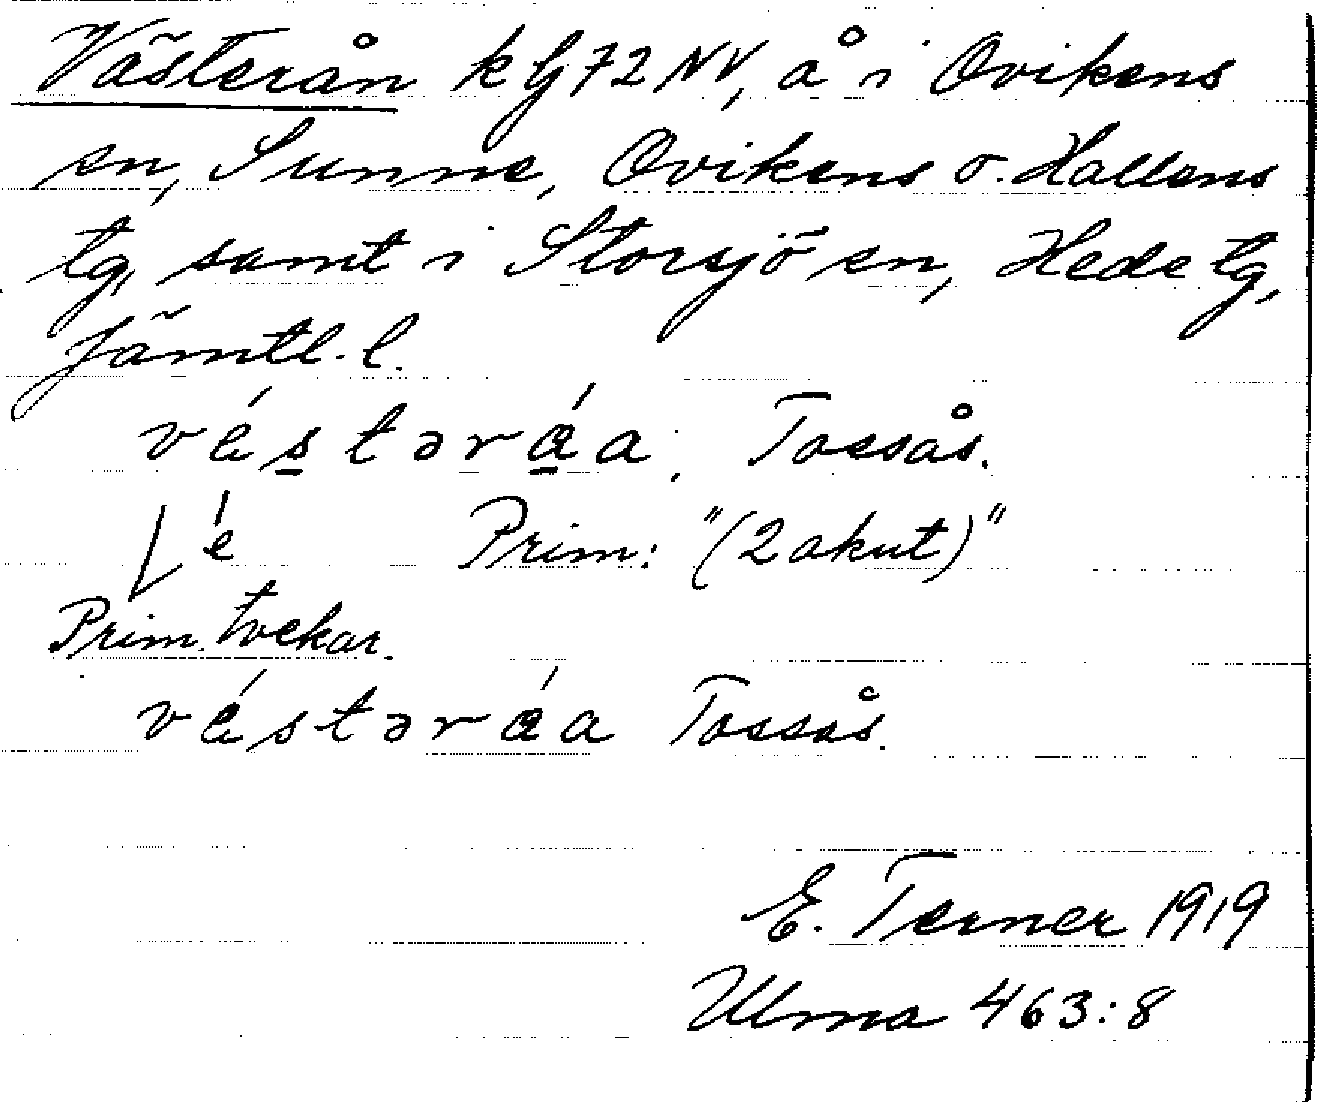 Västerån kG72NV, å i Ovikens
sn, Sunne, Ovikens o. Hallens
tg, samt i Storsjö sn, Hede tg,
Jämtl. l.
véstəráa, Tossås.
é Prim: "(2 akut)"
Prim. tvekar.
véstəráa Tossås.
E. Terner 1919
Ulma 463:8